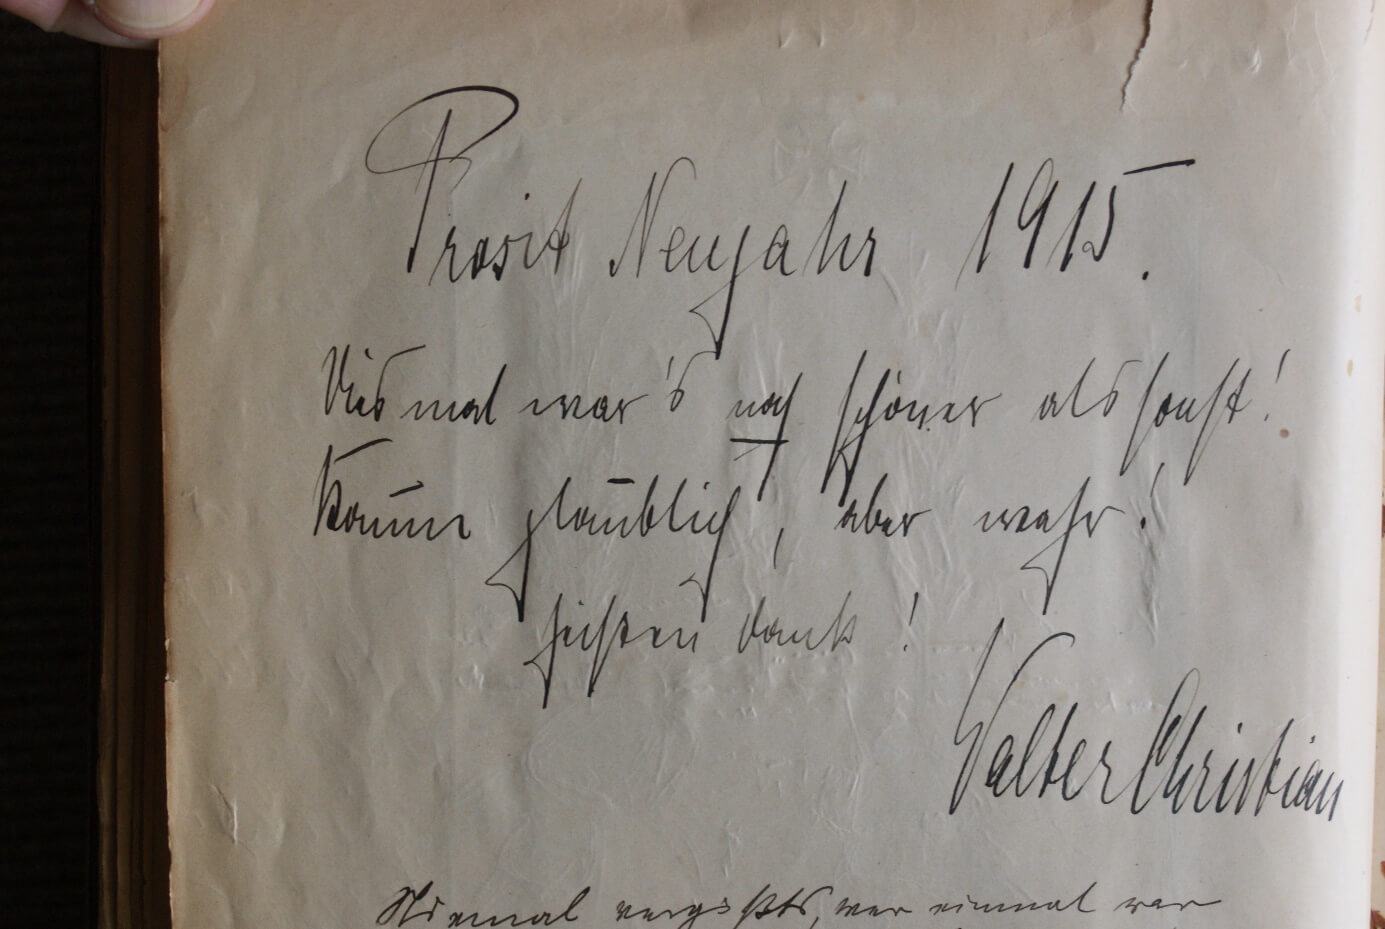 Prosit Neujahr 1915.
Diesmal war's noch schöner als sonst!
Kaum glaublich, aber wahr!
Heißen Dank!
Walter Christian
Niemal vergißts, wer einmal war